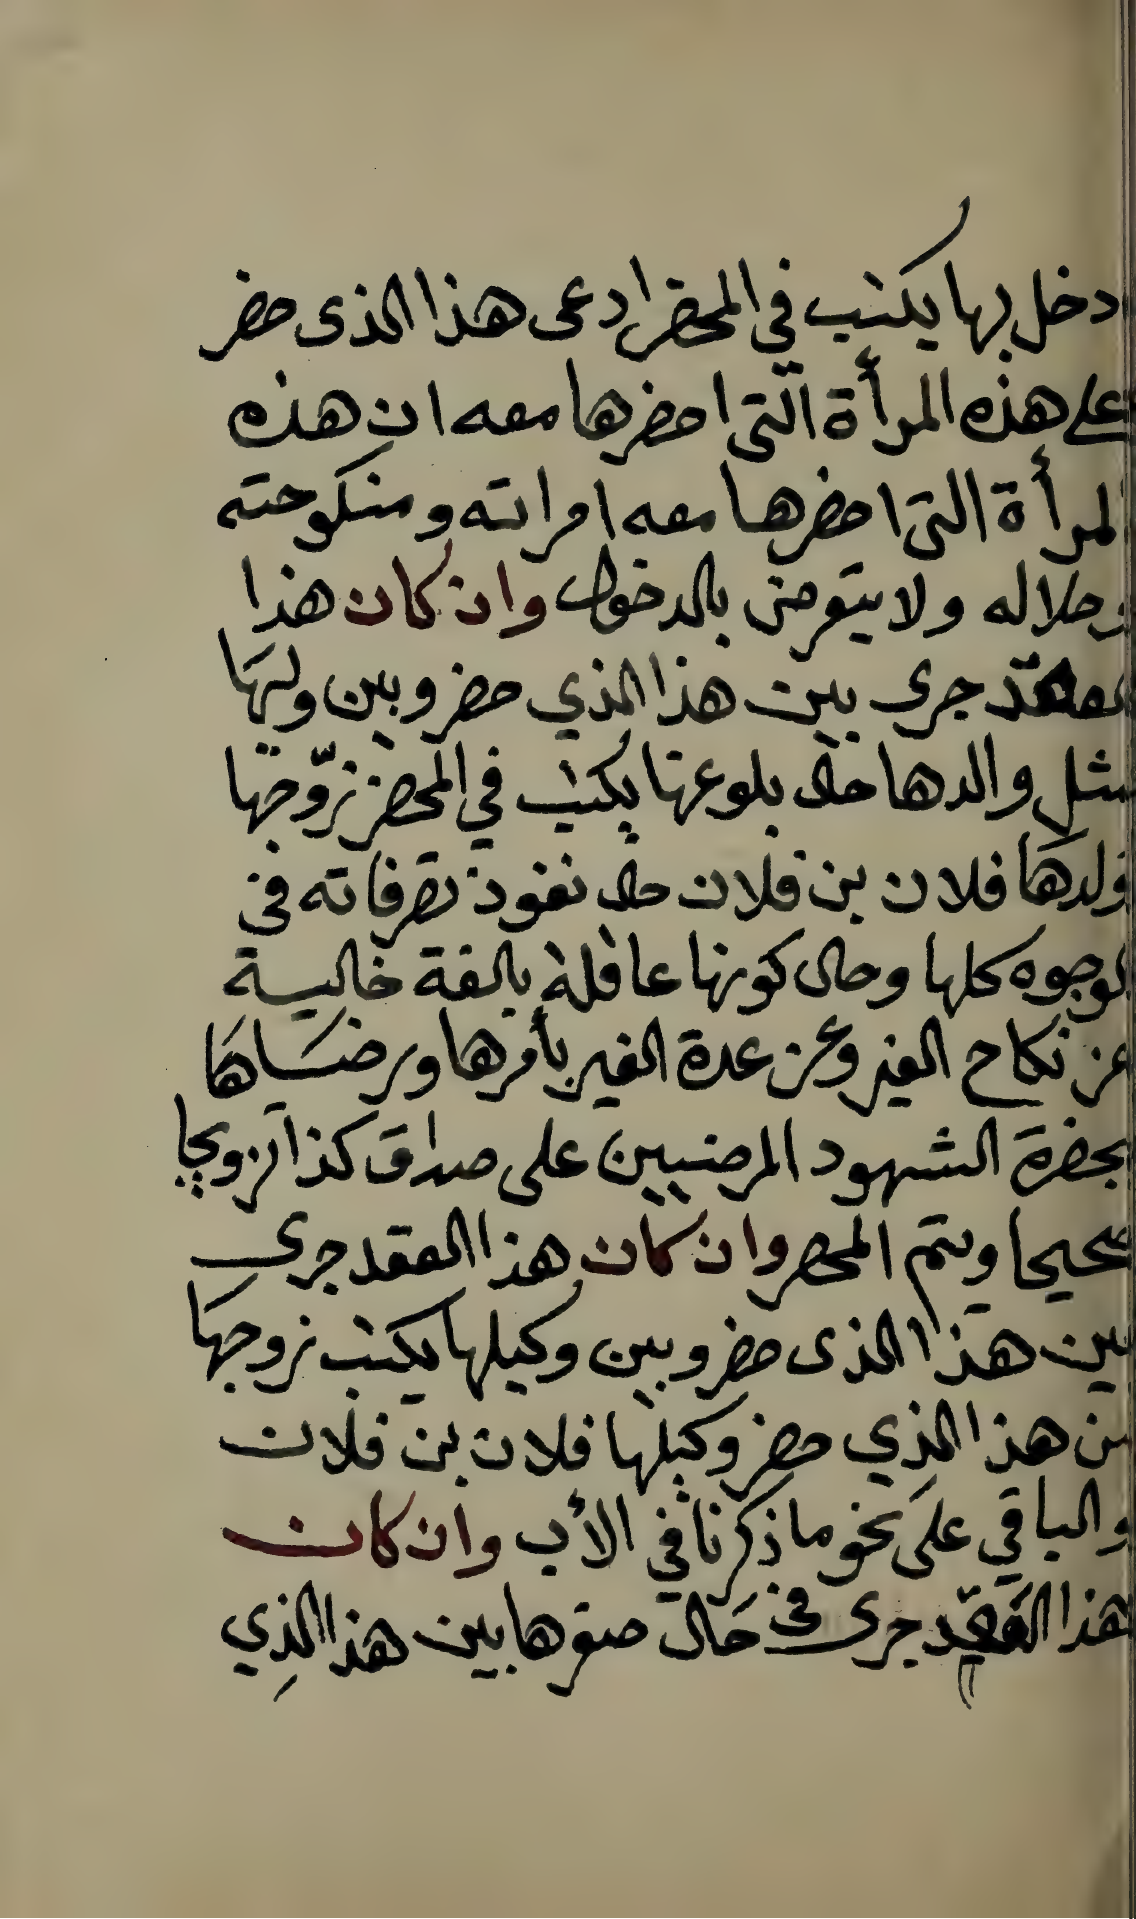 دخل بها يكتب في المحضر ادعى هذا الذى حضر
على هذه المرأة التى احضرها معه ان هذه
المرأة التى احضرها معه امراته ومنكوحته
وحلاله ولا يتعرض بالدخول وان كان هذا
العقد جرى بين هذا الذي حضر وبين وليها
مثل والدها حال بلوغها يكتب في المحضر زوّجها
ولدها فلان بن فلان حال نفوذ تصرفاته فى
الوجوه كلها وحال كونها عاقلة بالغة خالية
عن نكاح الغير وعن عدة الغير بأمرها ورضاها
بحضرة الشهود المرضيين على صداق كذا تزويجا
صحيحا ويتم المحضر وان كان هذا العقد جرى
بين هذا الذى حضر وبين وكيلها يكتب زوجها
من هذا الذي حضر وكيلها فلان بن فلان
والباقي على نحو ما ذكرنا في الأب وان كان
هذا العقد جرى فى حال صغرها بين هذا الذي